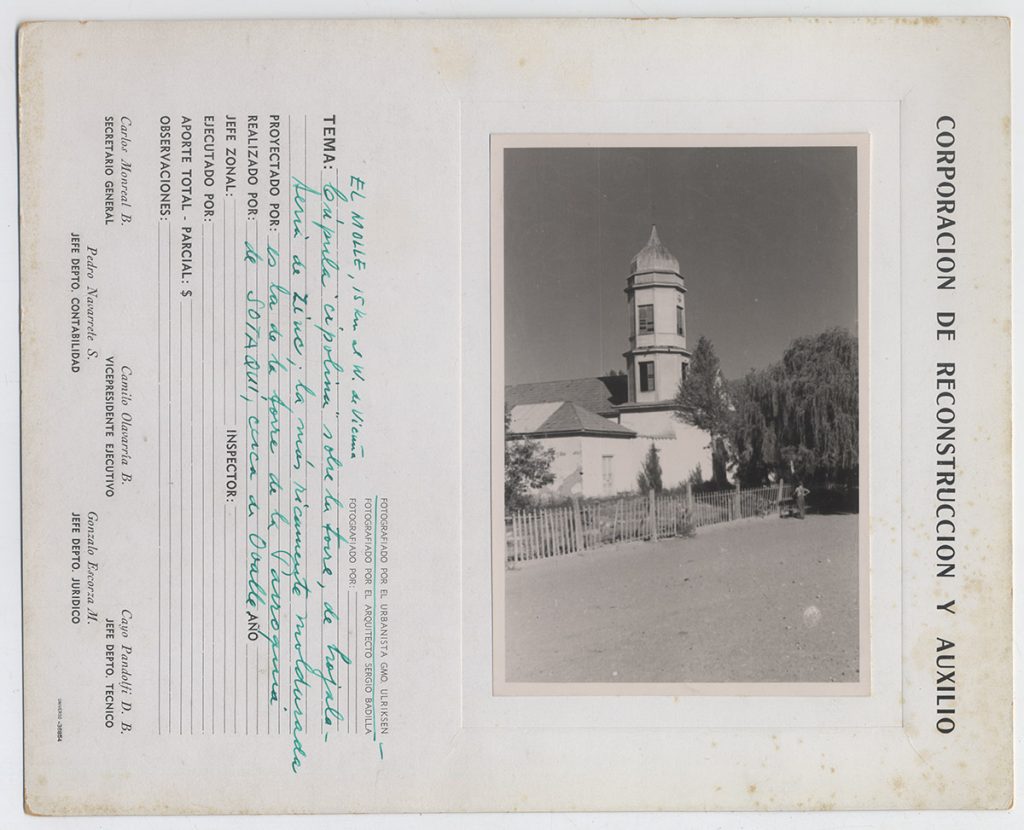 CORPORACION DE RECONSTRUCCION Y AUXILIO
FOTOGRAFIADO POR EL URBANISTA GMO. ULRIKSEN
FOTOGRAFIADO POR EL ARQUITECTO SERGIO BADILLA
FOTOGRAFIADO POR:
EL MOLLE, 15 km al W. de Vicuña
TEMA: Cúpula "cipolina" sobre la torre, de hojala-
tería de Zinc; la más ricamente moldurada
PROYECTADO POR: es la de la torre de la Parroquia
REALIZADO POR: de SOTAQUI, cerca de Ovalle AÑO
JEFE ZONAL: INSPECTOR:
EJECUTADO POR:
APORTE TOTAL - PARCIAL: $
OBSERVACIONES:
Carlos Monreal B. Camilo Olavarría B. Cayo Pandolfi D. B.
SECRETARIO GENERAL VICEPRESIDENTE EJECUTIVO JEFE DEPTO. TECNICO
Pedro Navarrete S. Gonzalo Escorza M.
JEFE DEPTO. CONTABILIDAD JEFE DEPTO. JURIDICO